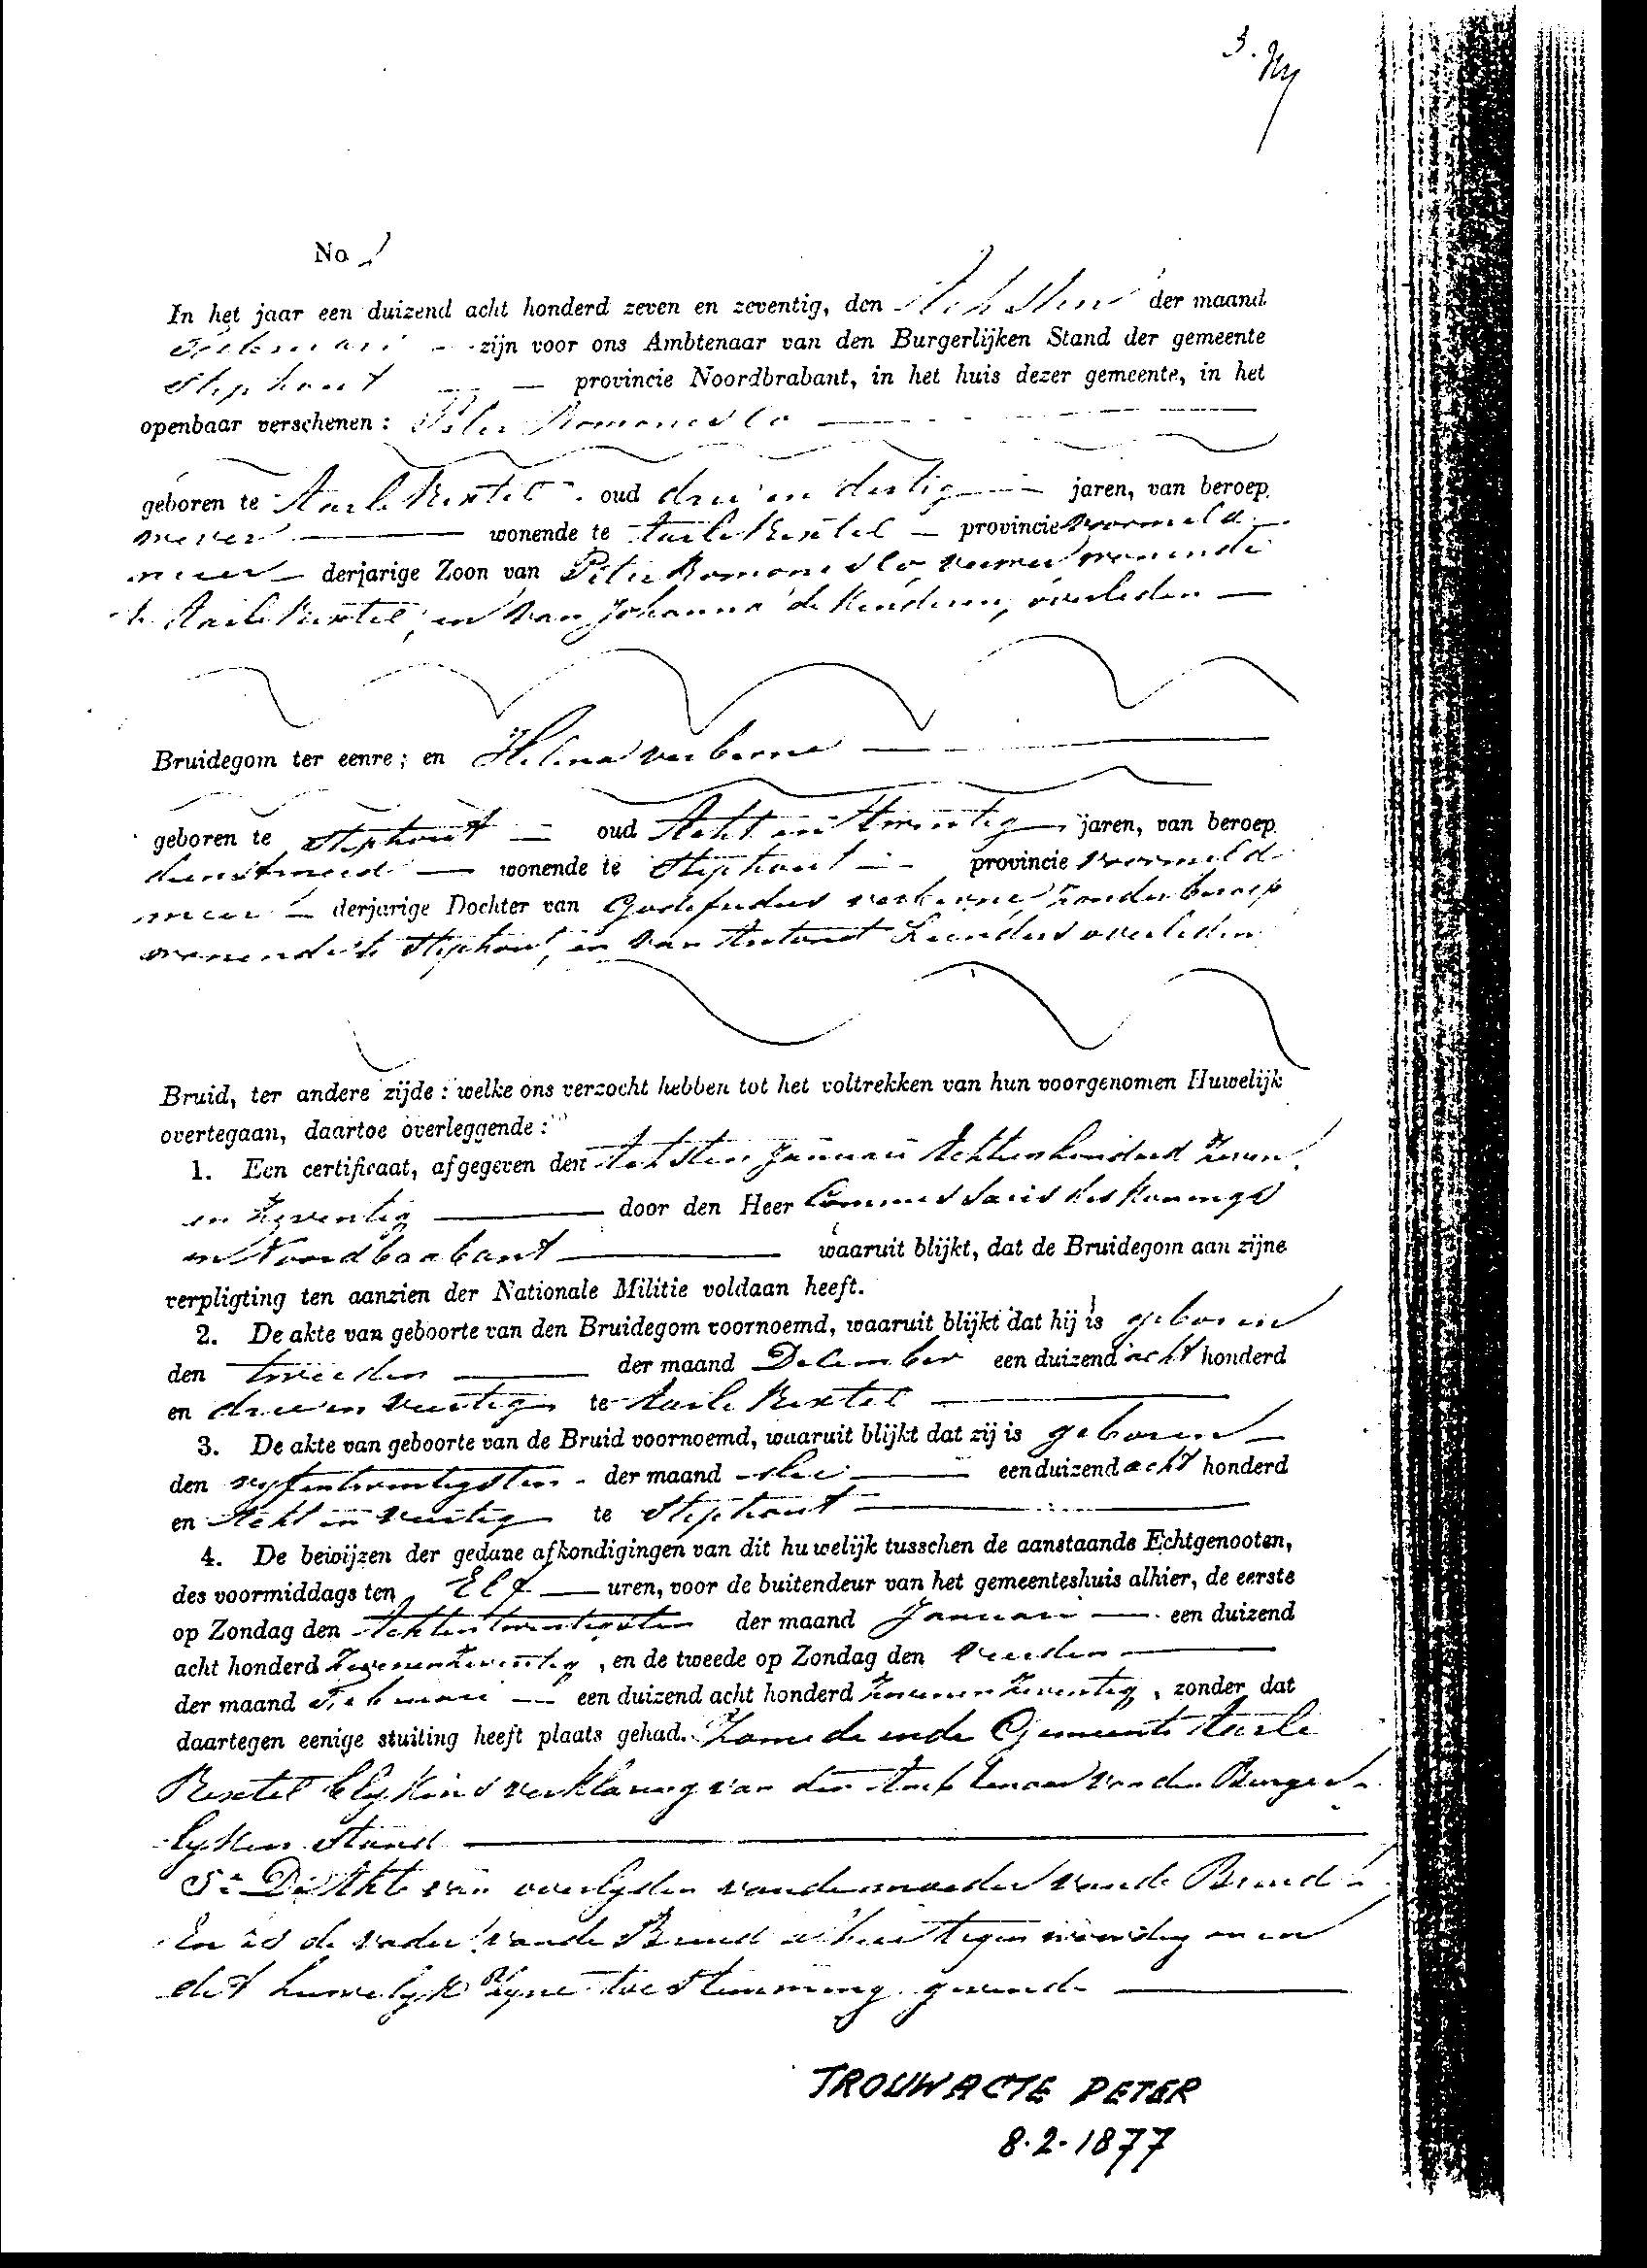 3.
No 1
In het jaar een duizend acht honderd zeven en zeventig, den Achsten der maand
Februari zijn voor ons Ambtenaar van den Burgerlijken Stand der gemeente
Stiphout provincie Noordbrabant, in het huis dezer gemeente, in het
openbaar verschenen: Peter Romonesco
geboren te Aarle Rixtel oud drie en dertig jaren, van beroep
wever wonende te Aarle Rixtel provincie voormeld
meer derjarige Zoon van Peter Romonesco, wever wonende
te Aarle Rixtel, en van Johanna de Kinderen, overleden
Bruidegom ter eenre; en Helena verberne
geboren te Stiphout oud Acht en twintig jaren, van beroep
dienstmeid wonende te Stiphout provincie voormeld
meer derjarige Dochter van Godefridus verberne, zonder beroep
wonende te Stiphout, en van Antonet Leenders overleden
Bruid, ter andere zijde: welke ons verzocht hebben tot het voltrekken van hun voorgenomen Huwelijk
overtegaan, daartoe overleggende:
1. Een certificaat, afgegeven den Achsten Januari Achtienhonderd zeven
en zeventig door den Heer Commessaris des Konings
in Noordbrabant waaruit blijkt, dat de Bruidegom aan zijne
verpligting ten aanzien der Nationale Militie voldaan heeft.
2. De akte van geboorte van den Bruidegom voornoemd, waaruit blijkt dat hij is geboren
den tweeden der maand December een duizend acht honderd
en drie en veertig te Aarle Rixtel
3. De akte van geboorte van de Bruid voornoemd, waaruit blijkt dat zij is geboren
den vyfentwentigsten der maand een duizend acht honderd
en Acht en veertig te Stiphout
4. De bewijzen der gedane afkondigingen van dit huwelijk tusschen de aanstaande Echtgenooten,
des voormiddags ten Elf uren, voor de buitendeur van het gemeenteshuis alhier, de eerste
op Zondag den Achtentwentigsten der maand Januari een duizend
acht honderd zevenenzeventig, en de tweede op Zondag den vierden
der maand Februari een duizend acht honderd zevenenzeventig, zonder dat
daartegen eenige stuiting heeft plaats gehad. Zomede in de Gemeente Aarle
Rixtel blykens verklaring van den Ambtenaar van den Burger
lyken Stand
5e De Akte van overlyden van de moeder van de Bruid
En is de vader van de Bruid alhier tegenwoordig om in
dit huwelyk zyne toestemming gevende
TROUWACTE PETER
8.2.1877